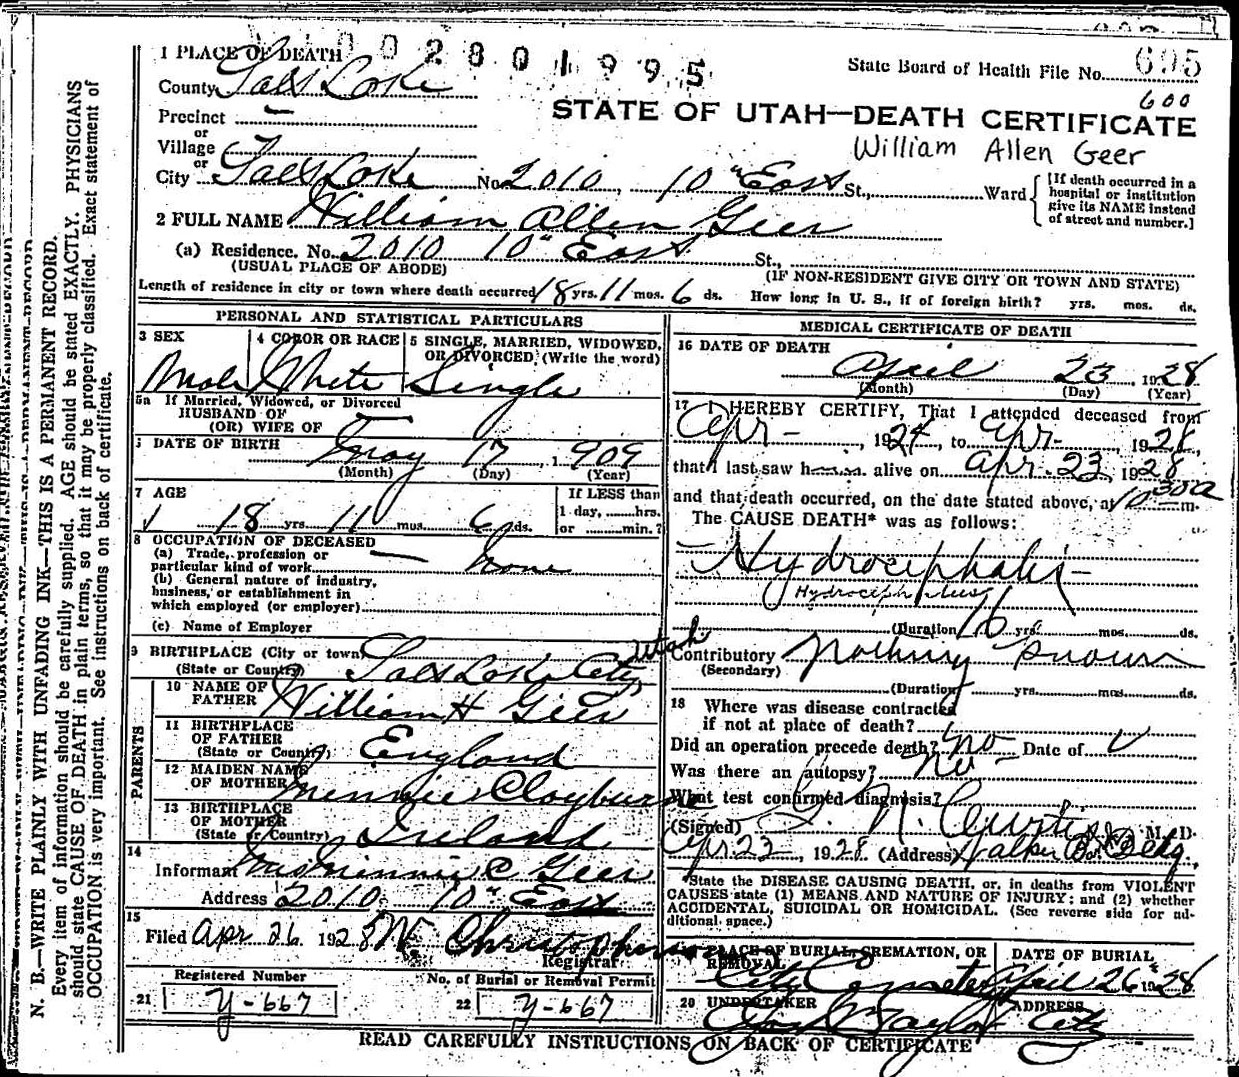 0 0 2 8 0 1 9 9 5
1 PLACE OF DEATH
State Board of Health File No. 695
County Salt Lake
600
STATE OF UTAH—DEATH CERTIFICATE
Precinct —
or
Village
William Allen Geer
or
City Salt Lake No. 2010, 10" East St., Ward
[If death occurred in a hospital or institution give its NAME instead of street and number.]
2 FULL NAME William Allen Geer
(a) Residence. No. 2010 10" East St.,
(USUAL PLACE OF ABODE) (IF NON-RESIDENT GIVE CITY OR TOWN AND STATE)
Length of residence in city or town where death occurred 18 yrs. 11 mos. 6 ds. How long in U. S., if of foreign birth? yrs. mos. ds.
PERSONAL AND STATISTICAL PARTICULARS
3 SEX
Male
4 COROR OR RACE
White
5 SINGLE, MARRIED, WIDOWED, OR DIVORCED (Write the word)
Single
5a If Married, Widowed, or Divorced
HUSBAND OF
(OR) WIFE OF
DATE OF BIRTH May 17, 1909
(Month) (Day) (Year)
7 AGE
18 yrs. 11 mos. 6 ds.
If LESS than
1 day, hrs.
or min.?
8 OCCUPATION OF DECEASED
(a) Trade, profession or
particular kind of work None
(b) General nature of industry,
business, or establishment in
which employed (or employer)
(c) Name of Employer
9 BIRTHPLACE (City or town) Salt Lake City Utah
(State or Country)
PARENTS
10 NAME OF
FATHER William H Geer
11 BIRTHPLACE
OF FATHER England
(State or Country)
12 MAIDEN NAME
OF MOTHER Minnie Clayburne
13 BIRTHPLACE
OF MOTHER Ireland
(State or Country)
14
Informant Mrs Minnie C Geer
Address 2010 10" East
15
Filed Apr 26 1928 Christopherson
Registrar
Registered Number
21 Y-667
No. of Burial or Removal Permit
22 Y-667
MEDICAL CERTIFICATE OF DEATH
16 DATE OF DEATH
April 23, 1928
(Month) (Day) (Year)
17 I HEREBY CERTIFY, That I attended deceased from
Apr-, 1924, to Apr- 1928,
that I last saw h alive on Apr. 23, 1928
and that death occurred, on the date stated above, at 10 30 a m.
The CAUSE DEATH* was as follows:
Hydrocephalis-
Hydrocephalus
(Duration) 16 yrs. mos. ds.
Contributory Nothing Known
(Secondary)
(Duration) yrs. mos. ds.
18 Where was disease contracted
if not at place of death?
Did an operation precede death? No Date of
Was there an autopsy? No-
What test confirmed diagnosis?
(Signed) N. Curtis M. D.
Apr 23, 1928 (Address) Walker Bk Bldg.
*State the DISEASE CAUSING DEATH, or, in deaths from VIOLENT
CAUSES state (1) MEANS AND NATURE OF INJURY; and (2) whether
ACCIDENTAL, SUICIDAL OR HOMICIDAL. (See reverse side for ad-
ditional space.)
PLACE OF BURIAL, CREMATION, OR
REMOVAL
City Cemetery
DATE OF BURIAL
April 26" 1928
20 UNDERTAKER
Taylor
ADDRESS
City
READ CAREFULLY INSTRUCTIONS ON BACK OF CERTIFICATE
N. B.—WRITE PLAINLY WITH UNFADING INK—THIS IS A PERMANENT RECORD.
Every item of information should be carefully supplied. AGE should be stated EXACTLY. PHYSICIANS
should state CAUSE OF DEATH in plain terms, so that it may be properly classified. Exact statement of
OCCUPATION is very important. See instructions on back of certificate.